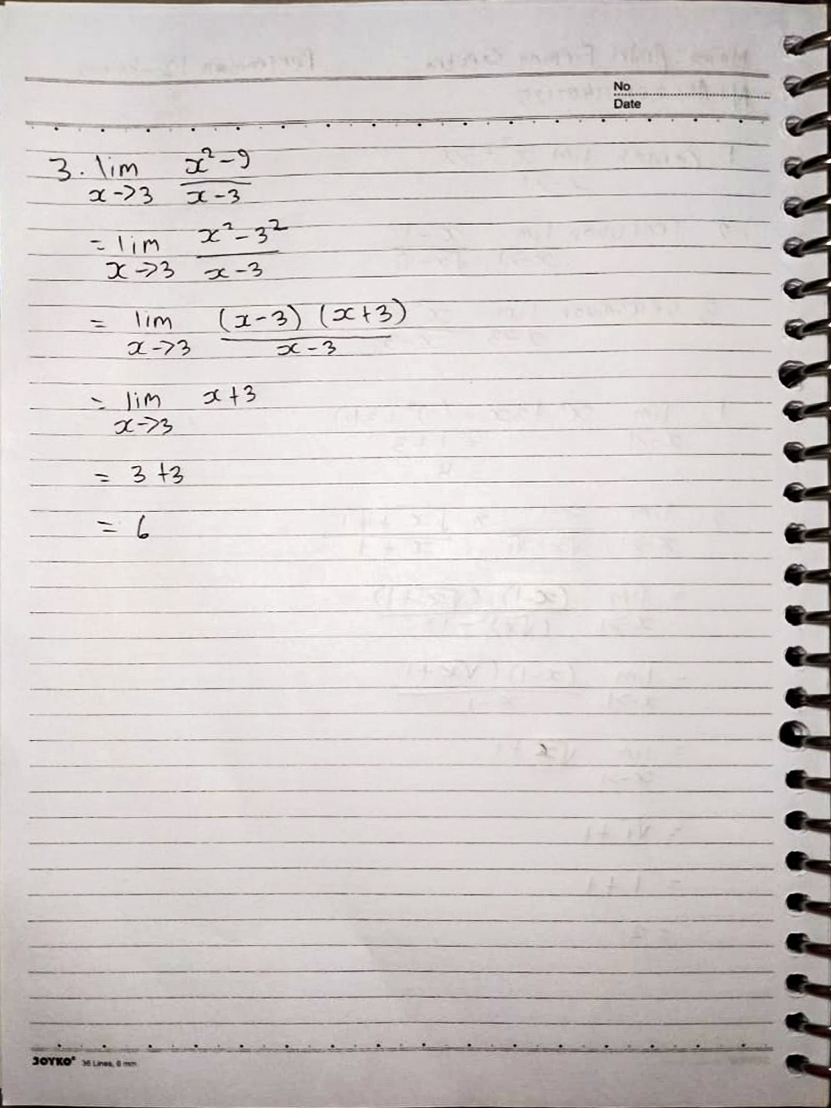 No
Date
3. lim x²-9
x->3 x-3
= lim x²-3²
x->3 x-3
= lim (x-3) (x+3)
x->3 x-3
= lim x+3
x->3
= 3+3
= 6
JOYKO® 36 Lines, 8 mm